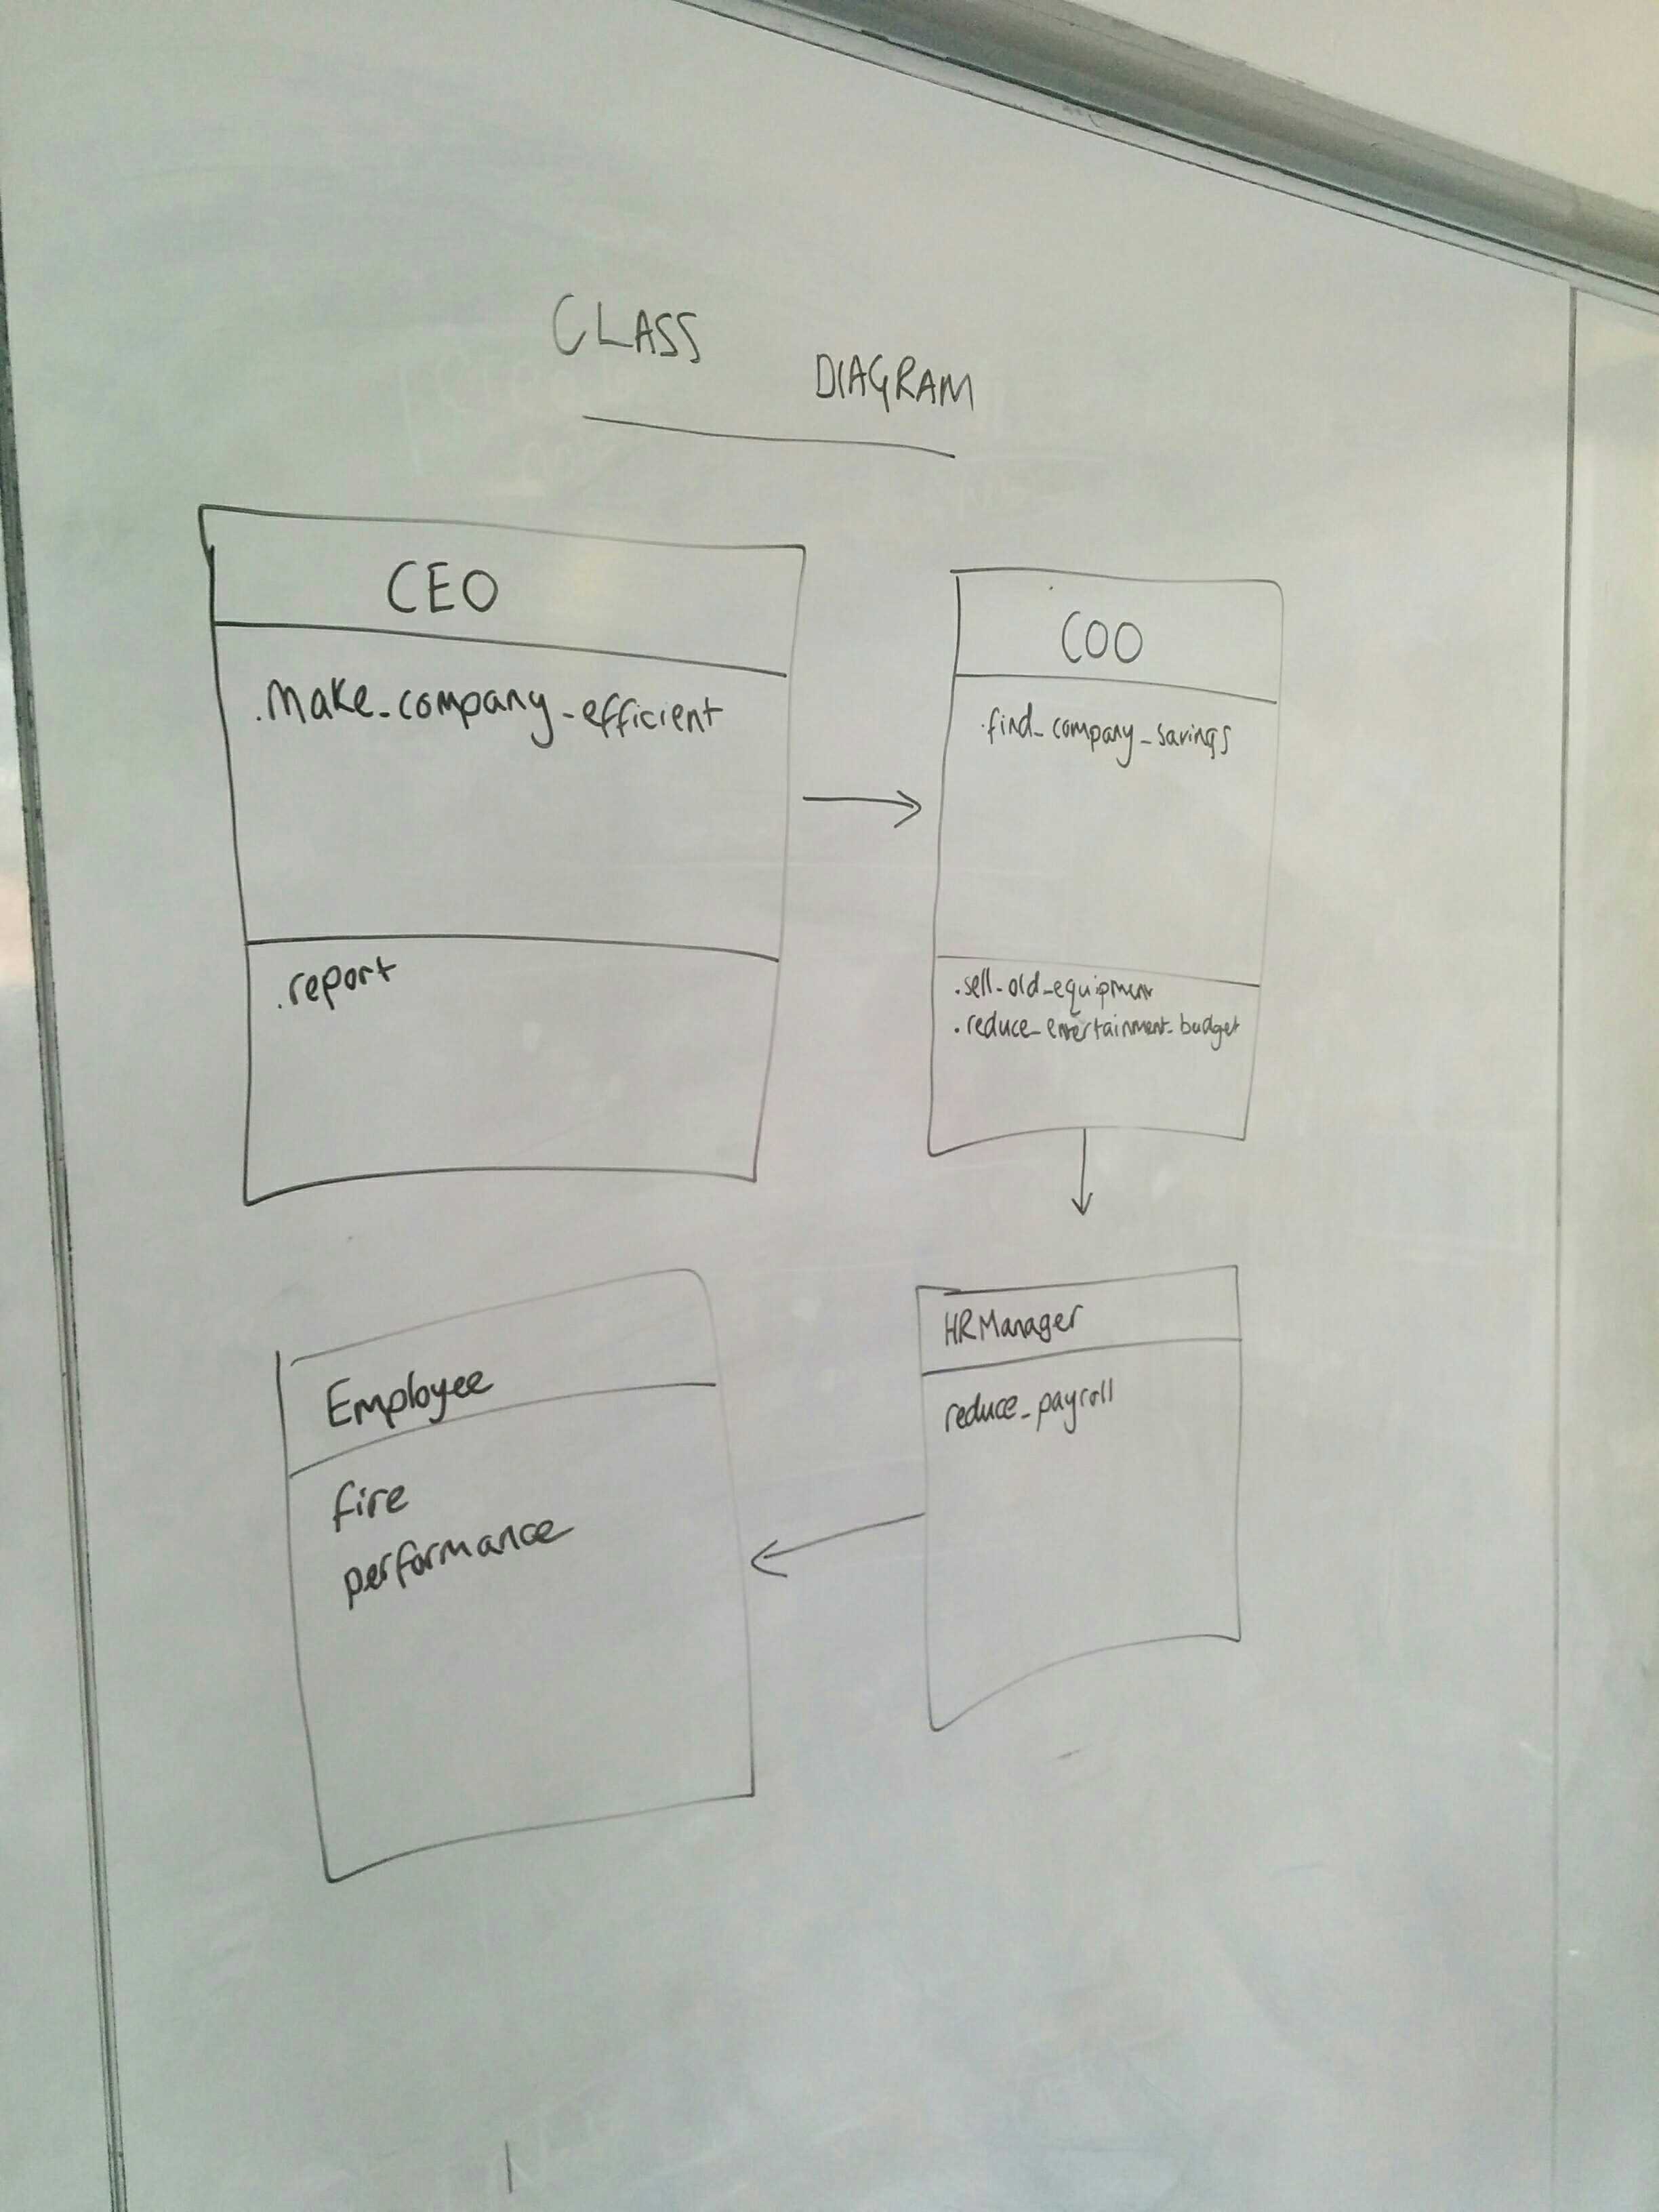 CLASS DIAGRAM
CEO
.make_company_efficient
.report
COO
.find_company_savings
.sell_old_equipment
.reduce_entertainment_budget
HRManager
reduce_payroll
Employee
fire
performance